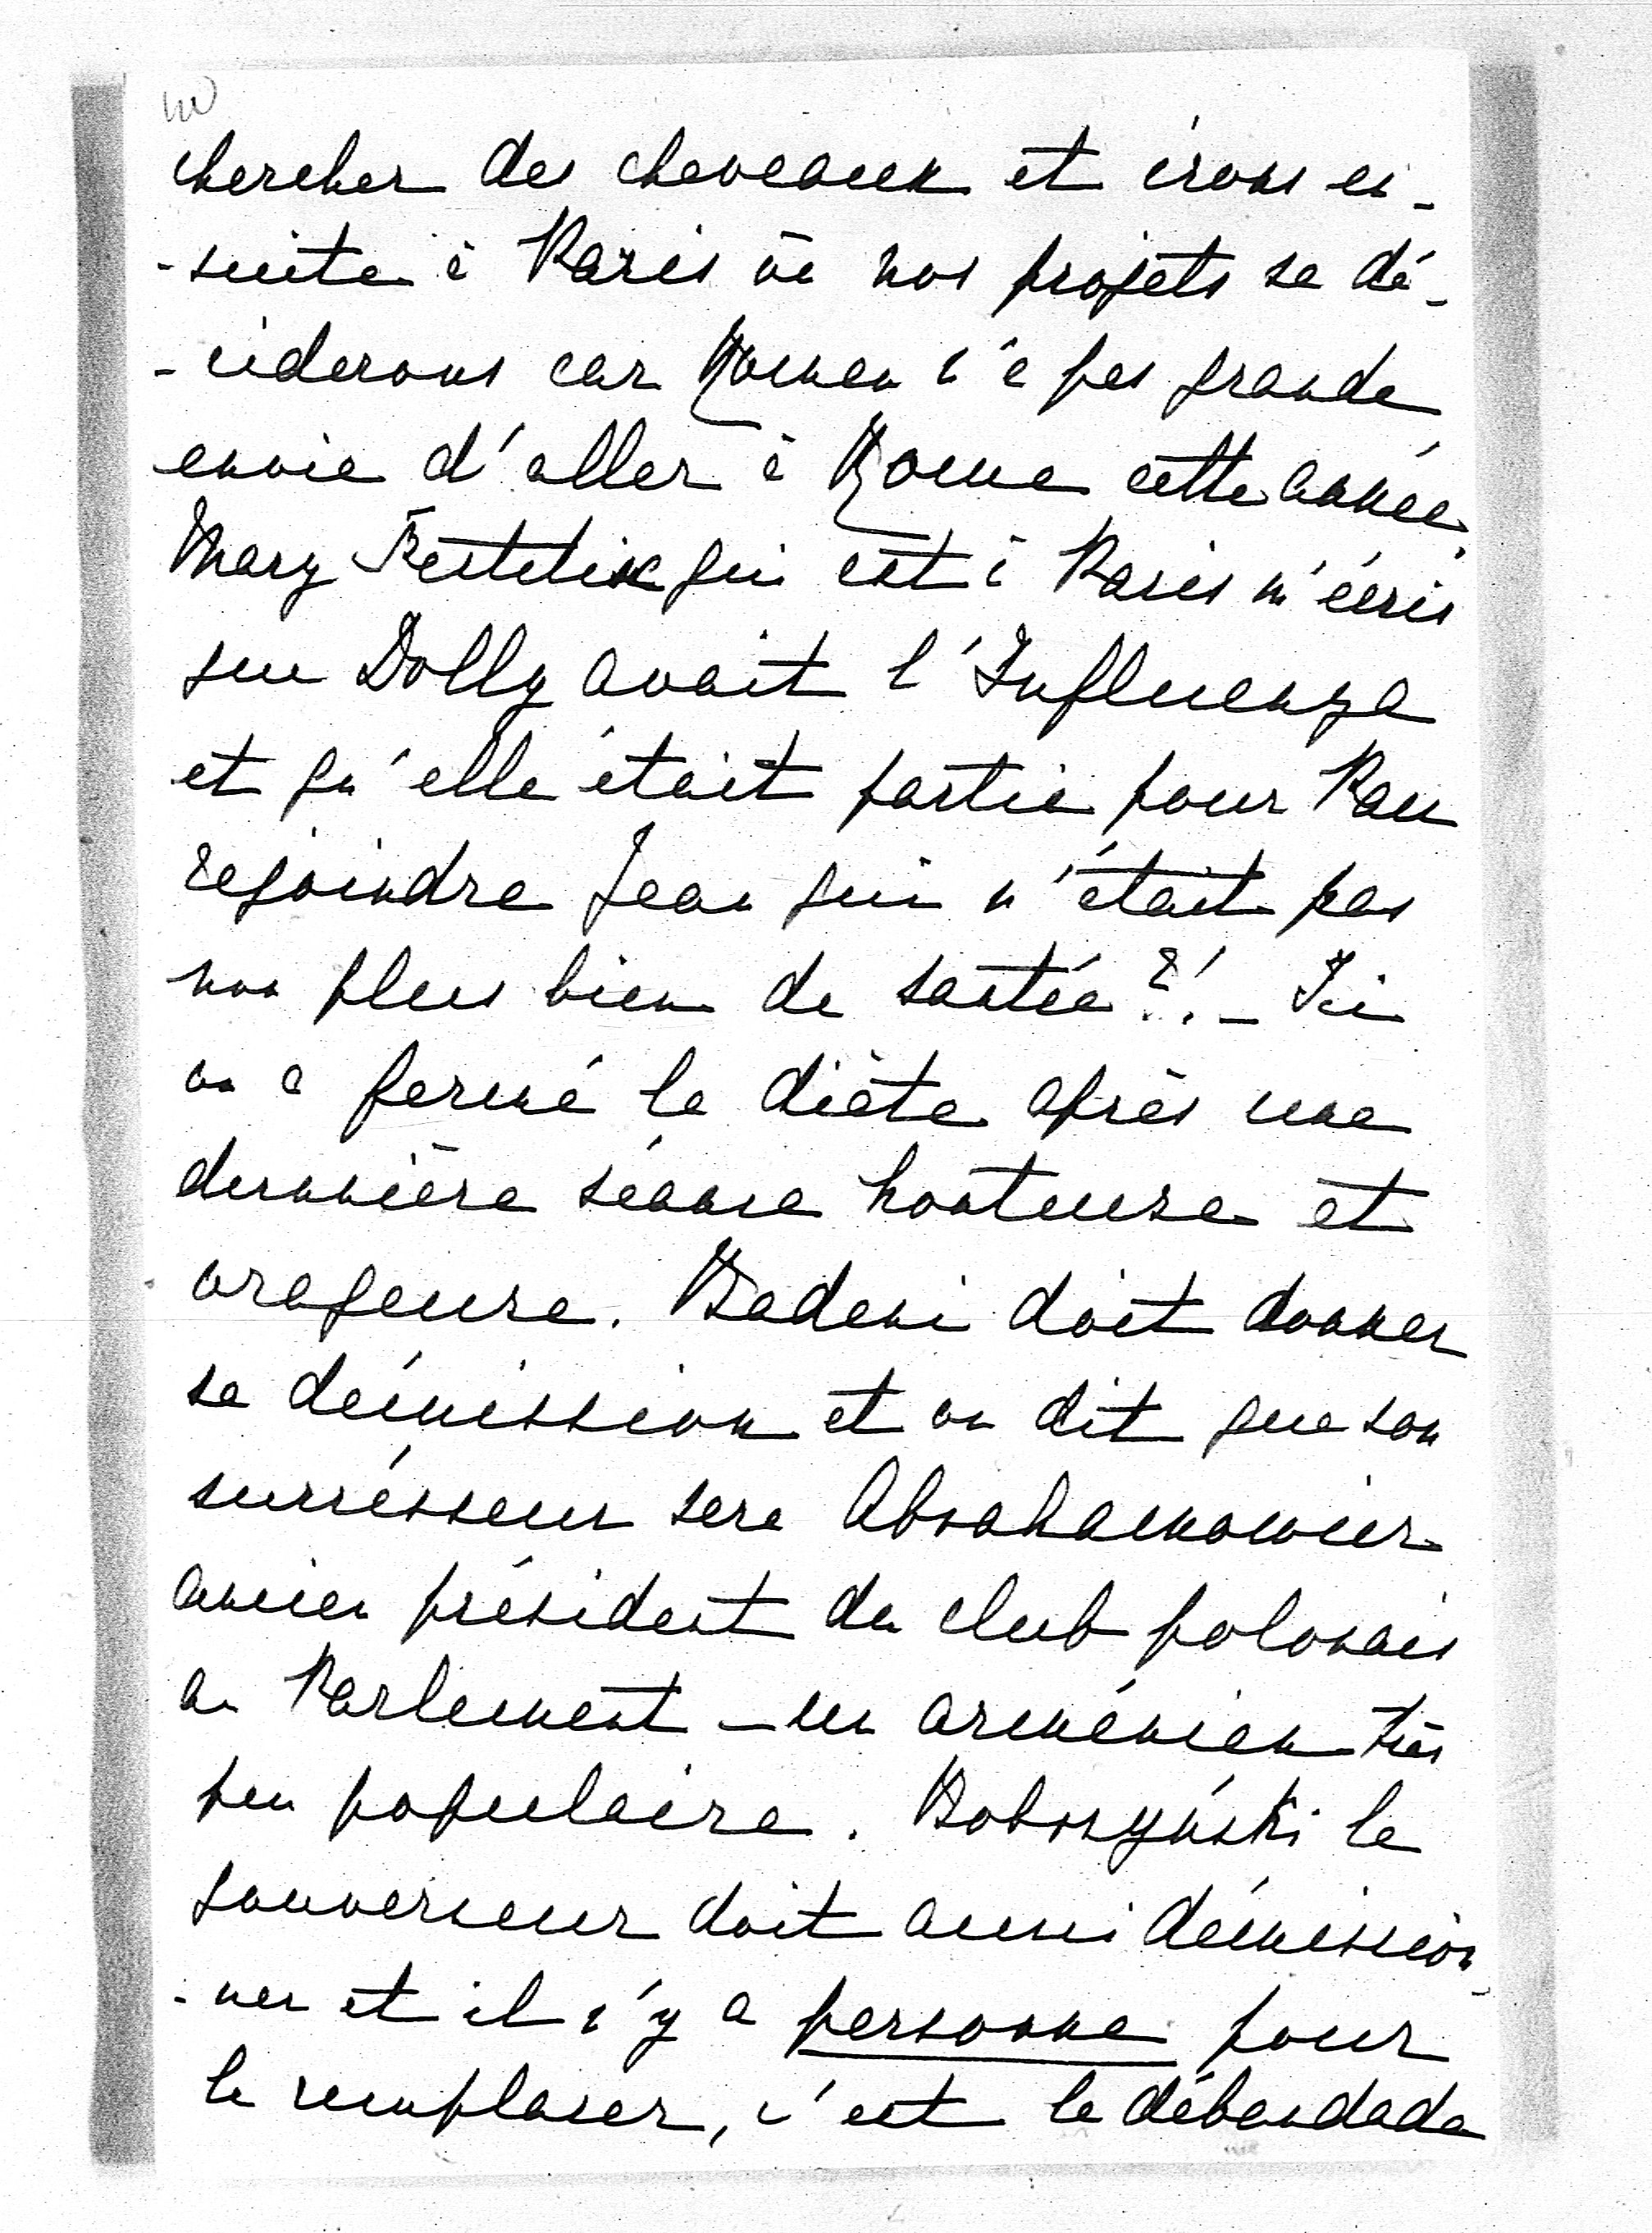 chercher des cheveaux et irons en-
-suite à Paris où nos projets se dé-
-ciderons car Roman n'a pas grande
envie d'aller à Rome cette année.
Mary Festetix qui est à Paris m'écris
que Dolly avait l'Influenza
et qu'elle était partie pour Pau
rejoindre Jean qui n'était pas
non plus bien de santée?! - Ici
on a fermé la diète après une
dernnière séance honteuse et
orageuse. Badeni doit donner
sa démission et on dit que son
succésseur sera Abrahamowicz
ancien président du club polonais
au Parlement - un arménien très
peu populaire. Bobrzyński le
gouverneur doit aussi démission-
-ner et il n'y a personne pour
le remplacer, c'est la débandade